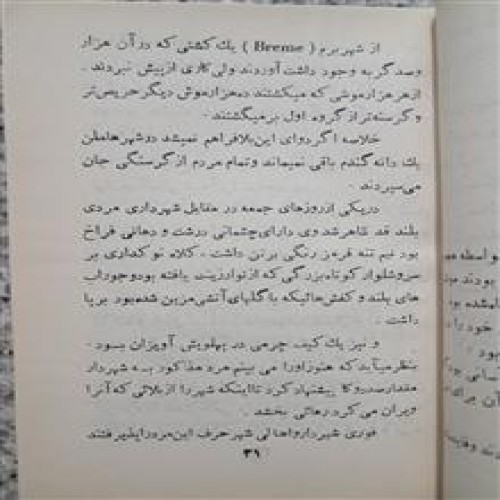 از شهر برم (Breme) يك كشتى كه در آن هزار
وصد گربه وجود داشت آوردند ولى كارى از پيش نبردند .
از هر هزار موشى كه ميكشتند ده هزار موش ديگر حريص‌تر
و گرسنه‌تر از گروه اول بر ميگشتند .
خلاصه اگر دواى اين بلا فراهم نميشد در شهر هاملن
يك دانه گندم باقى نميماند و تمام مردم از گرسنگى جان
مى‌سپردند .
در يكى از روزهاى جمعه در مقابل شهردارى مردى
بلند قد ظاهر شد وى داراى چشمانى درشت و دهانى فراخ
بود نيم تنه قرمز رنگى بر تن داشت ، كلاه نو كدارى بر
سر و شلوار كوتاه بزرگى كه از نوار زينت يافته بود و جوراب
هاى بلند و كفش‌هائيكه با گلهاى آتشى مزين شده بود بر پا
داشت .
و نيز يك كيف چرمى در پهلويش آويزان بود .
بنظر ميآيد كه هنوز او را مى بينم مرد مذكور به شهردار
مقدار صد دوكا پيشنهاد كرد تا اينكه شهر را از بلائى كه آنرا
ويران مى كرد رهائى بخشد .
فورى شهردار و اهالى شهر حرف اين مرد را پذيرفتند
۳۱
بودند
خود را
بود .
آن براى